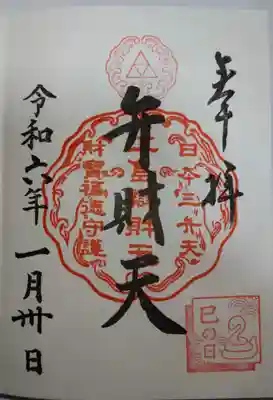 奉拝
日本三弁天
弁財天
財寶福徳守護
令和六年一月卅日
巳の日